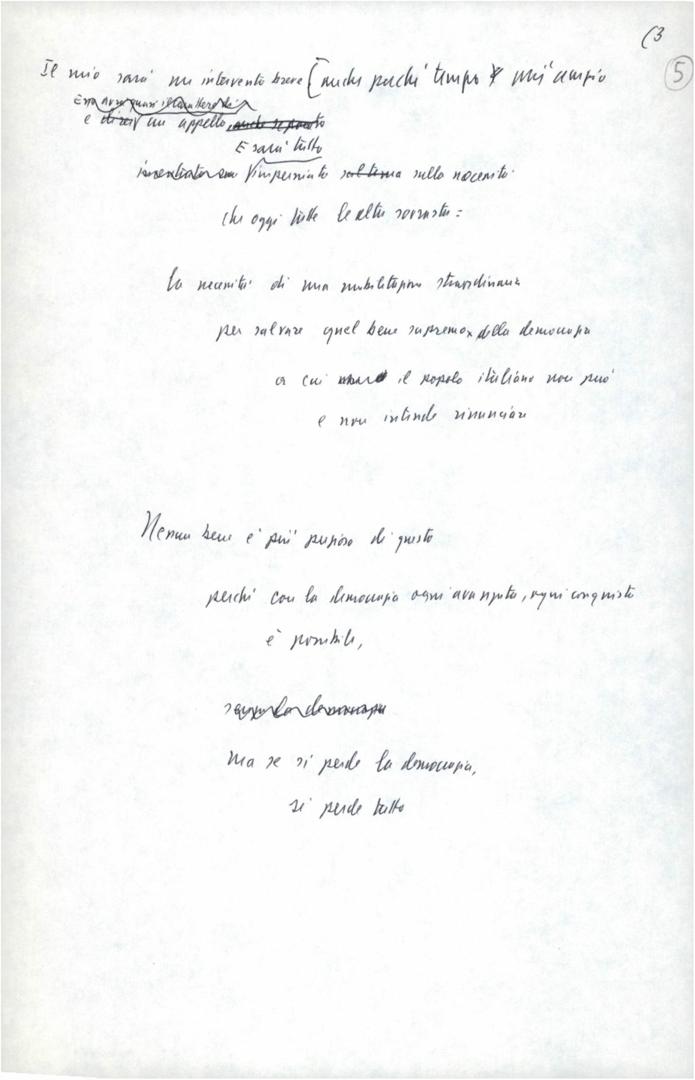 (3
5
Il mio sarà un intervento breve (anche perché tempo
e direi un appello anche se
E sarà tutto
imperniato sul tema sulla necessità
che oggi tutte le altre sovrasta:
la necessità di una mobilitazione straordinaria
per salvare quel bene supremo della democrazia
a cui il popolo italiano non può
e non intende rinunciare
Nessun bene è più prezioso di questo
perché con la democrazia ogni avanzata, ogni conquista
è possibile,
se la democrazia
Ma se si perde la democrazia,
si perde tutto